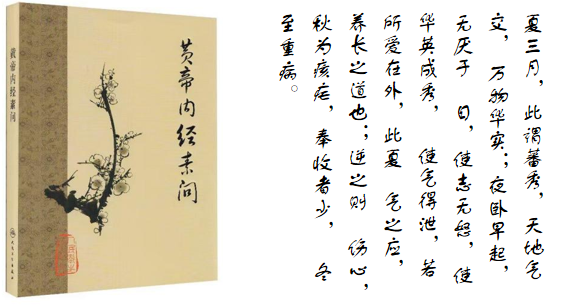 黄帝内经素问
黄帝内经素问
夏三月，此谓蕃秀，天地气
交，万物华实；夜卧早起，
无厌于 日，使志无怒，使
华英成秀， 使气得泄，若
所爱在外，此夏 气之应，
养长之道也；逆之则 伤心，
秋为痎疟，奉收者少， 冬
至重病。